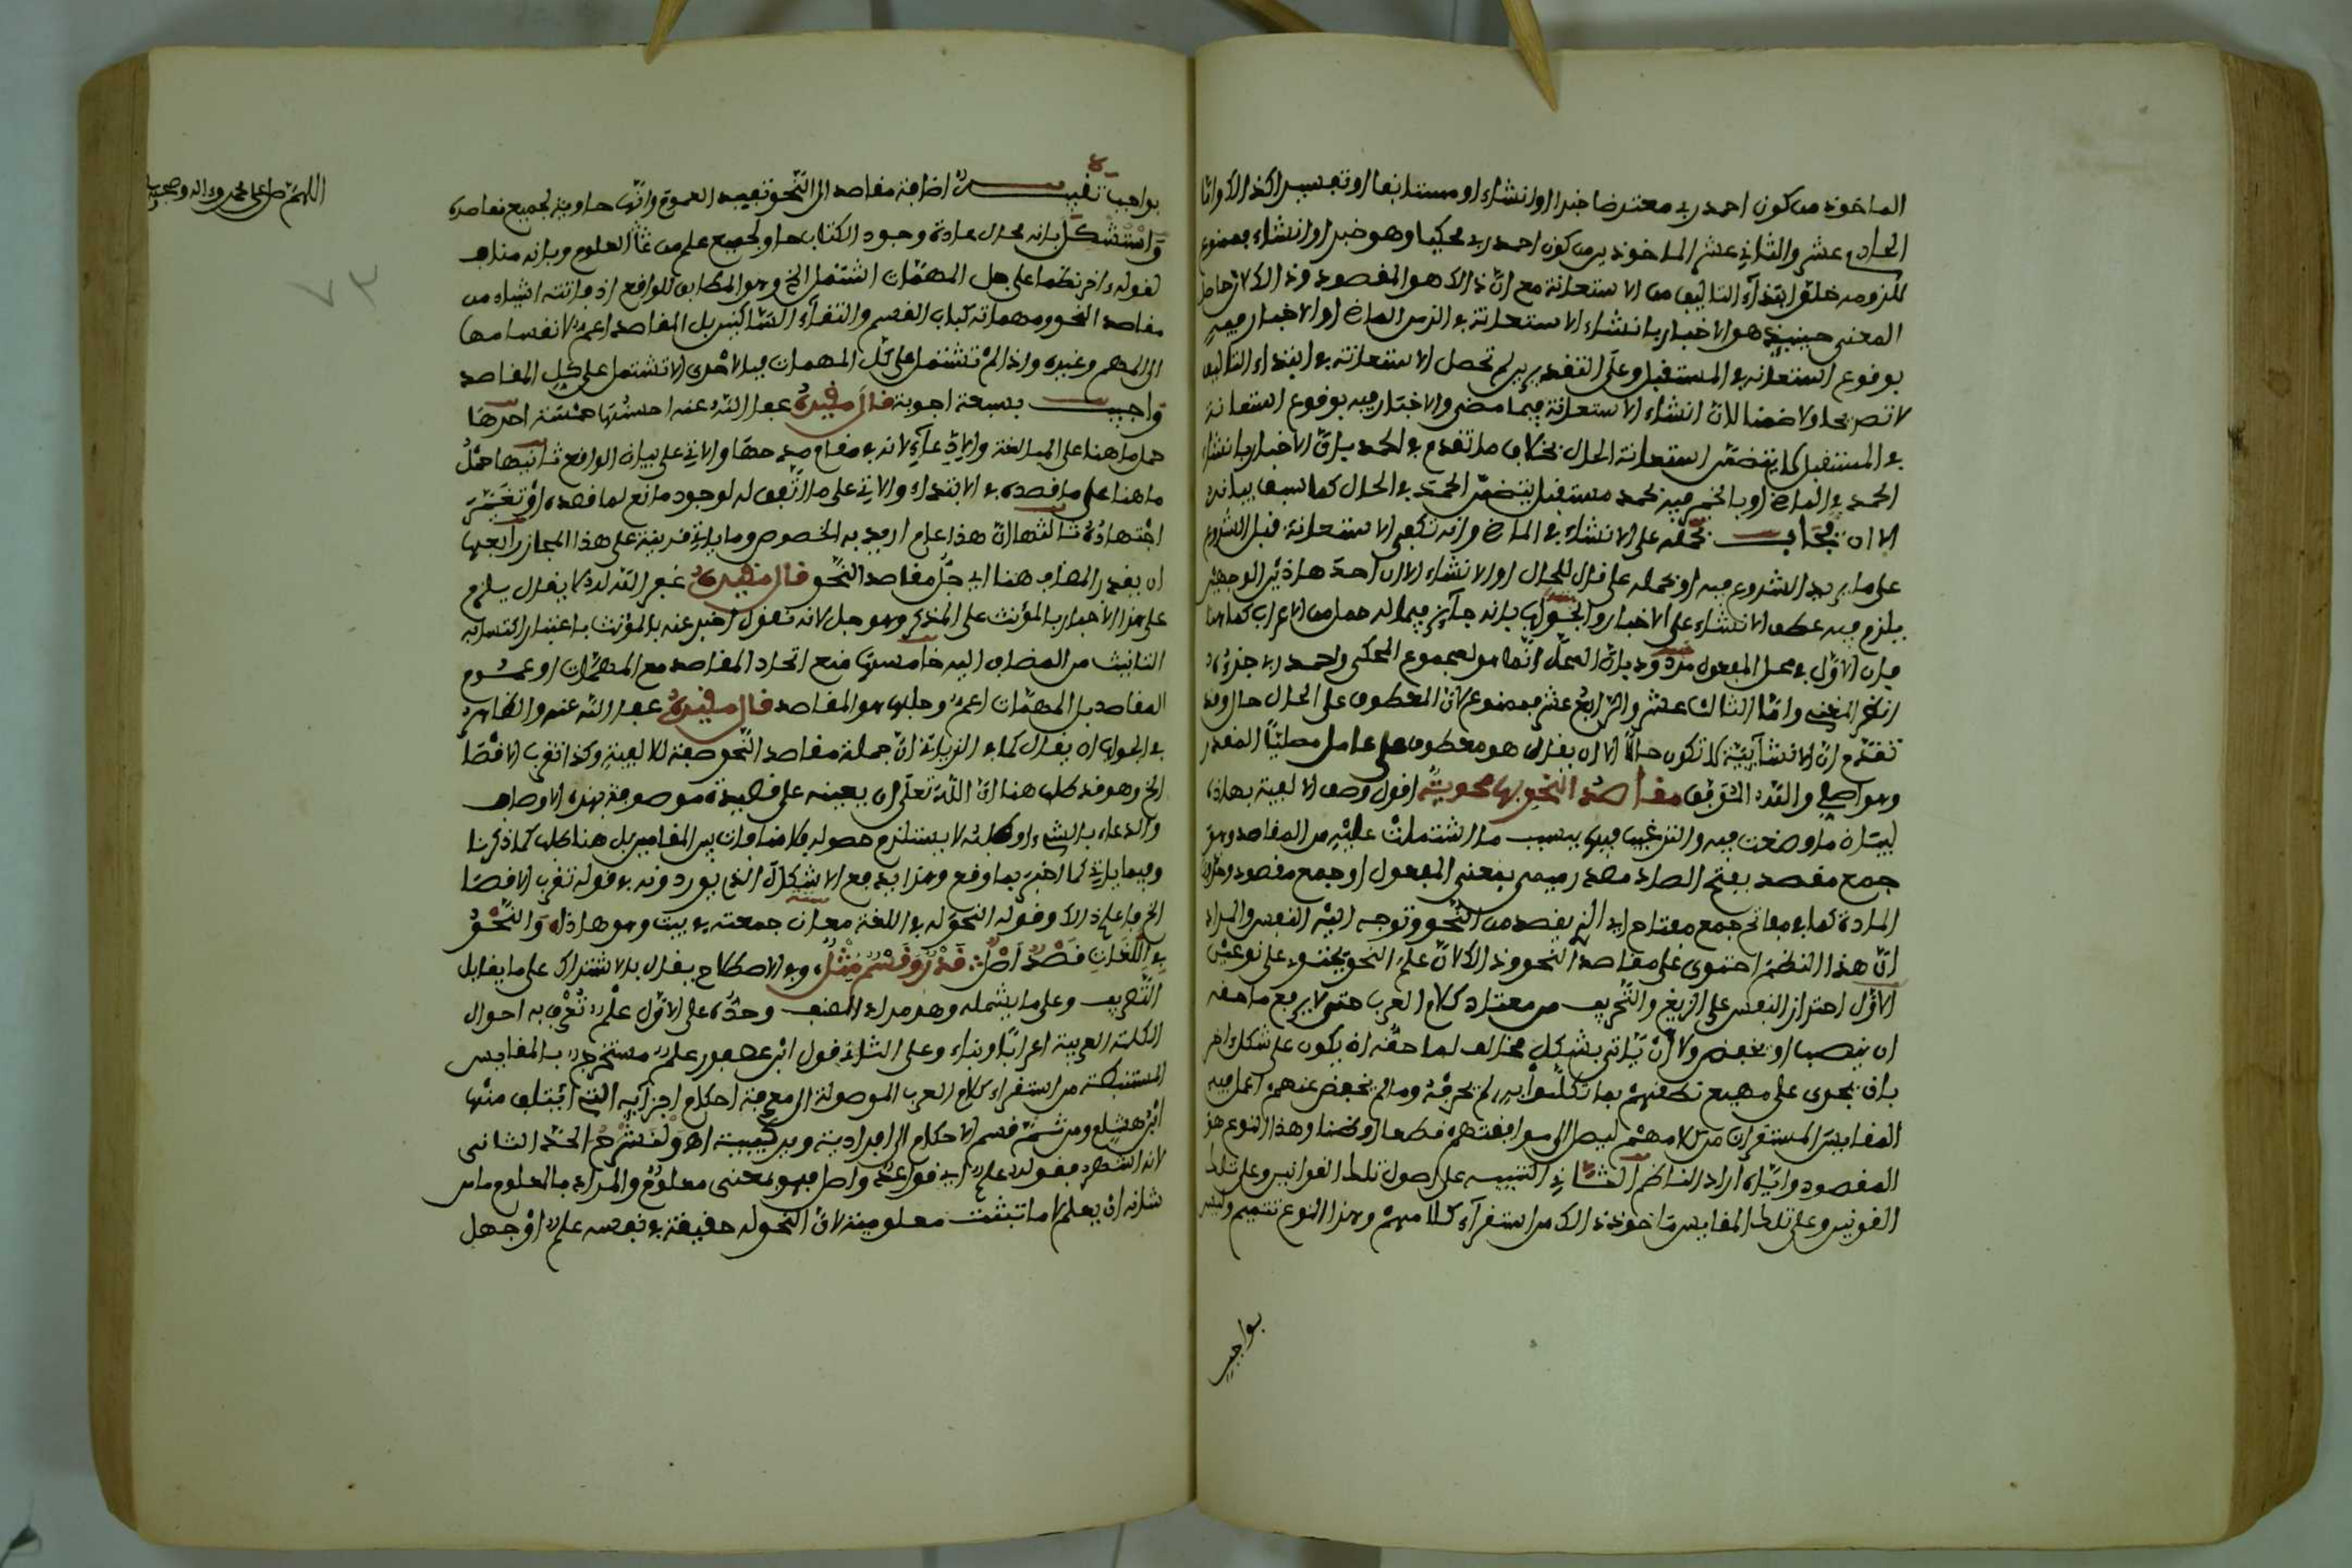 الماخوذ من كون احمد ربي معترضا خبرا او انشاء او مستانفا او تفسيرا كذالك واما
الحادي عشر والثاني عشر الماخوذين من كون احمد ربي محكيا وهو خبر او انشاء فممنوع
للزومه خلو ابتداء التاليف من الاستعانة مع ان ذالك هو المقصود وذالك لان حاصل
المعنى حينيذ هو الاخبار بانشاء الاستعانة في الزمن الماضي او الاخبار فيه
بوقوع استعانة في المستقبل وعلى التقديرين لم تحصل الاستعانة في ابتداء التاليف
لا تصريحا ولا ضمنا لان انشاء الاستعانة فيما مضى والاخبار فيه بوقوع استعانة
في المستقبل لا يتضمن استعانة الحال بخلاف ما تقدم في الحمد بان الاخبار بانشاء
الحمد في الماضي او بالخبر فيه بحمد مستقبل يتضمن الحمد في الحال كما سبق بيانه
الا ان يجاب بحمله على الانشاء في الماضي وانه تكفي الاستعانة قبل الشروع
على ما يريد الشروع فيه او بحمله على قال للحال او الانشاء الا ان احد هاذين الوجهين
يلزم فيه عطف الانشاء على الاخبار والجواب بانه جايز فيما له محل من الاعراب كما هنا
فان الاول في محل المفعول مردود بان المحل انما هو لمجموع المحكي واحمد ربي جزؤه
انظر المغني واما الثالث عشر والرابع عشر فممنوع لان المعطوف على الحال حال وقد
تقدم ان الانشائية لا تكون حالا الا ان يقال هو معطوف على عامل مصليا المقدر
وهو اصلي والله الموفق مقاصد النحو بها محوية اقول وصف الالفية بهاذا
لبيان ما وضعت فيه والترغيب فيها بسبب ما اشتملت عليه من المقاصد وهو
جمع مقصد بفتح الصاد مصدر ميمي بمعنى المفعول او جمع مقصود وحذف
المادة كما في مفاتح جمع مفتاح اي الذي يقصد من النحو وتوجه اليه النفس والمراد
ان هذا النظم احتوى على مقاصد النحو وذالك لان علم النحو يحتوي على نوعين
الاول احتراز النفس على الزيغ والتحريف من معتاد كلام العرب حتى لا يرفع ما حقه
ان ينصب او يخفض ولا ان ياتي بشكل مخالف لما حقه ان يكون على شكل اخر
بان يجري على مهيع نطقهم بما تكلموا به لم يحرفه وما لم يحفظ عنهم اعمل فيه
المقايس المستقرات من كلامهم ليصل الى موافقتهم قطعا او ظنا وهذا النوع هو
المقصود واياه اراد الناظم الثاني التنبيه على اصول تلك القوانين وعلى تلك
القونين وعلى تلك المقايس ماخوذ ذالك من استقراء كلامهم وهذا النوع تتميم وليس
بواجب
بواجب تنبيه اضافة مقاصد الى النحو تفيد العموم وانها حاوية لجميع مقاصده
واستشكل بانه محال عادة وجود الكتاب حاو لجميع علم من العلوم وبانه مناف
لقوله ءاخر نظما على جل المهمات اشتمل الخ وهو المطابق للواقع اذ فاتته اشياء من
مقاصد النحو ومهماته كباب القسم والتقاء الساكنين بل المقاصد اعم لانقسامها
الى المهم وغيره واذا لم تشتمل على كل المهمات فبالاحرى الا تشتمل على كل المقاصد
واجيب بسبعة اجوبة قال مقيده عفا الله عنه احسنها خمسة احدها
حمل ما هنا على المبالغة والادعاء لانه في مقام مدحها والاتي على بيان الواقع ثانيها حمل
ما هنا على ما قصده في الابتداء والاتي على ما اتفق له لوجود مانع لما قصده او تغير
اجتهاده ثالثها ان هذا عام اريد به الخصوص وما ياتي قرينة على هذا المجاز رابعها
ان يقدر المضاف هنا اي جل مقاصد النحو قال مقيده غفر الله له لا يقال يلزم
على هذا الاخبار بالمؤنث على المذكر وهو جل لانه نقول اخبر عنه بالمؤنث باعتبار اكتسابه
التانيث من المضاف اليه خامسها منع اتحاد المقاصد مع المهمات او عموم
المقاصد بل المهمات اعم وجلها هو المقاصد قال مقيده عفا الله عنه والظاهر
في الجواب ان يقال كما في الزيات ان جملة مقاصد النحو صفة لالفية وكذا تقرب الاقصا
الخ وهو قد طلب هنا ان الله تعلى ان يعينه على قصيدة موصوفة بهذه الاوصاف
والدعاء بالشيء او طلبه لا يستلزم حصوله فلا منافات بين المقامين بل هنا طلب كما ذكرنا
وفيما ياتي لما اخبر بما وقع وهذا يدفع الاشكال الذي يوردونه في قوله تقرب الاقصا
الخ فاعلم ذالك وقوله النحو له في اللغة معان جمعته في بيت وهو هاذا والنحو
في اللغات قصد اصل ∴ قدر وقسم مثل وفي الاصطلاح يقال بالاشتراك على ما يقابل
التصريف وعلى ما يشمله وهو مراد المصنف وحده على الاول علم تعرف به احوال
الكلمة العربية اعرابا وبناء وعلى الثاني قول ابن عصفور علم مستخرج بالمقايس
المستنبطة من استقراء كلام العرب الموصولة الى معرفة احكام اجزايه التي ائتلف منها
ابن هشام ومن ثم قسم الاحكام الى افرادية وتركيبية اه ولنشرح الحد الثاني
لانه اشهر فقوله علم اي قواعد واصل فهو بمعنى معلوم والمراد بالعلوم ما من
شانه ان يعلم لا ما تبثت معلوميته لان النحو له حقيقة في نفسه علم او جهل
اللهم صل على محمد وءاله وصحبه
٧٣